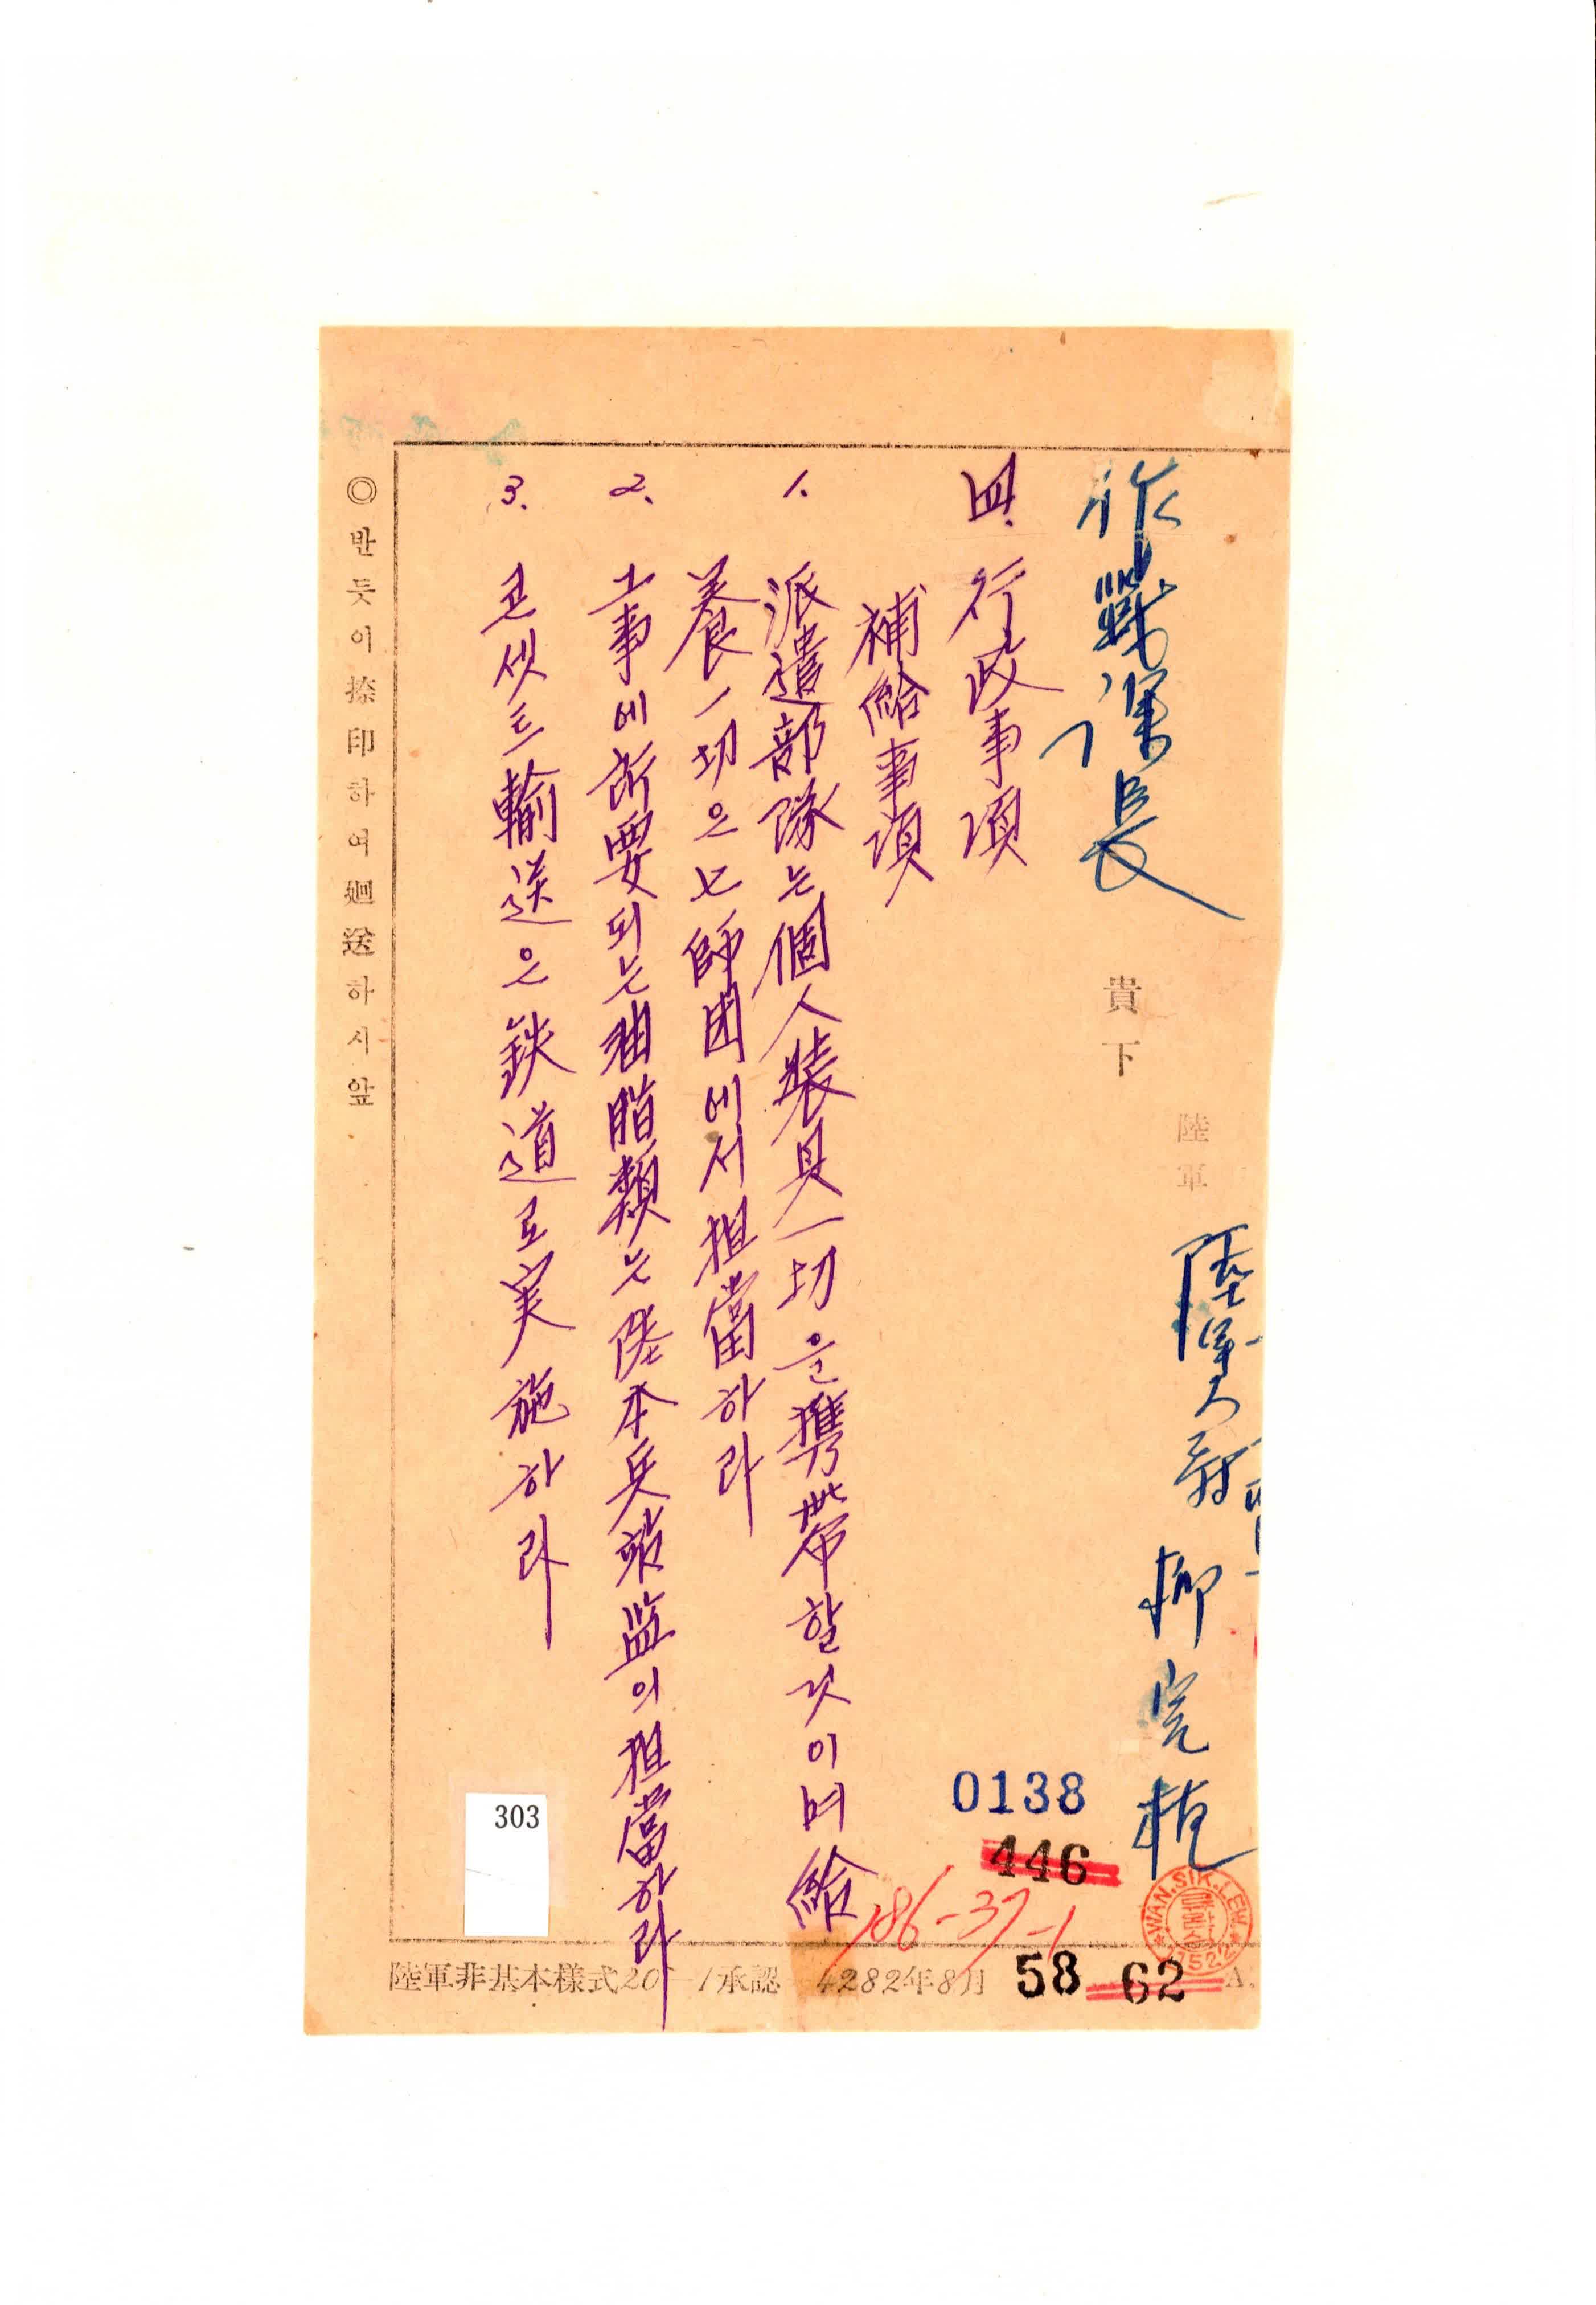 陸軍
陸軍大領 柳完植
作戰課長 貴下
四. 行政事項
補給事項
1. 派遣部隊는 個人裝具一切을 携帶할 것이며 給
養一切은 七師団에서 担當하라
2. 工事에 所要되는 油脂類는 陸本兵站監이 担當하라
3. 콘셋트 輸送은 鉄道로 実施하라
◎ 반듯이 捺印하여 廻送하시앞
0138
446
186-37-1
WAN.SIK.LEW.
58 62
303
陸軍非基本様式20-1承認 4282年8月